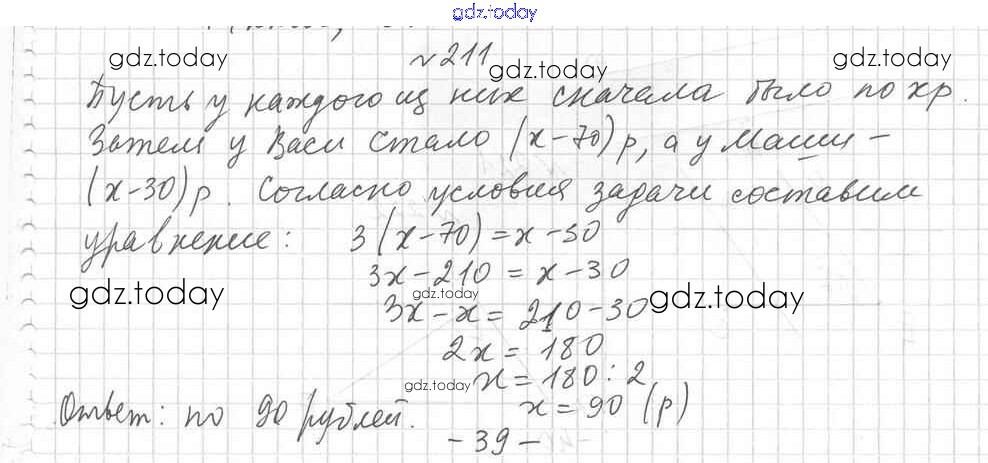 gdz.today
gdz.today
gdz.today
gdz.today
№ 211
Пусть у каждого из них сначала было по x р.
Затем у Васи стало (x-70) р, а у Маши -
(x-30) р. Согласно условия задачи составим
уравнение: 3(x-70)=x-30
3x-210 = x-30
gdz.today
gdz.today
gdz.today
3x-x = 210-30
2x = 180
gdz.today
x = 180:2
Ответ: по 90 рублей.
x = 90 (р)
- 39 -